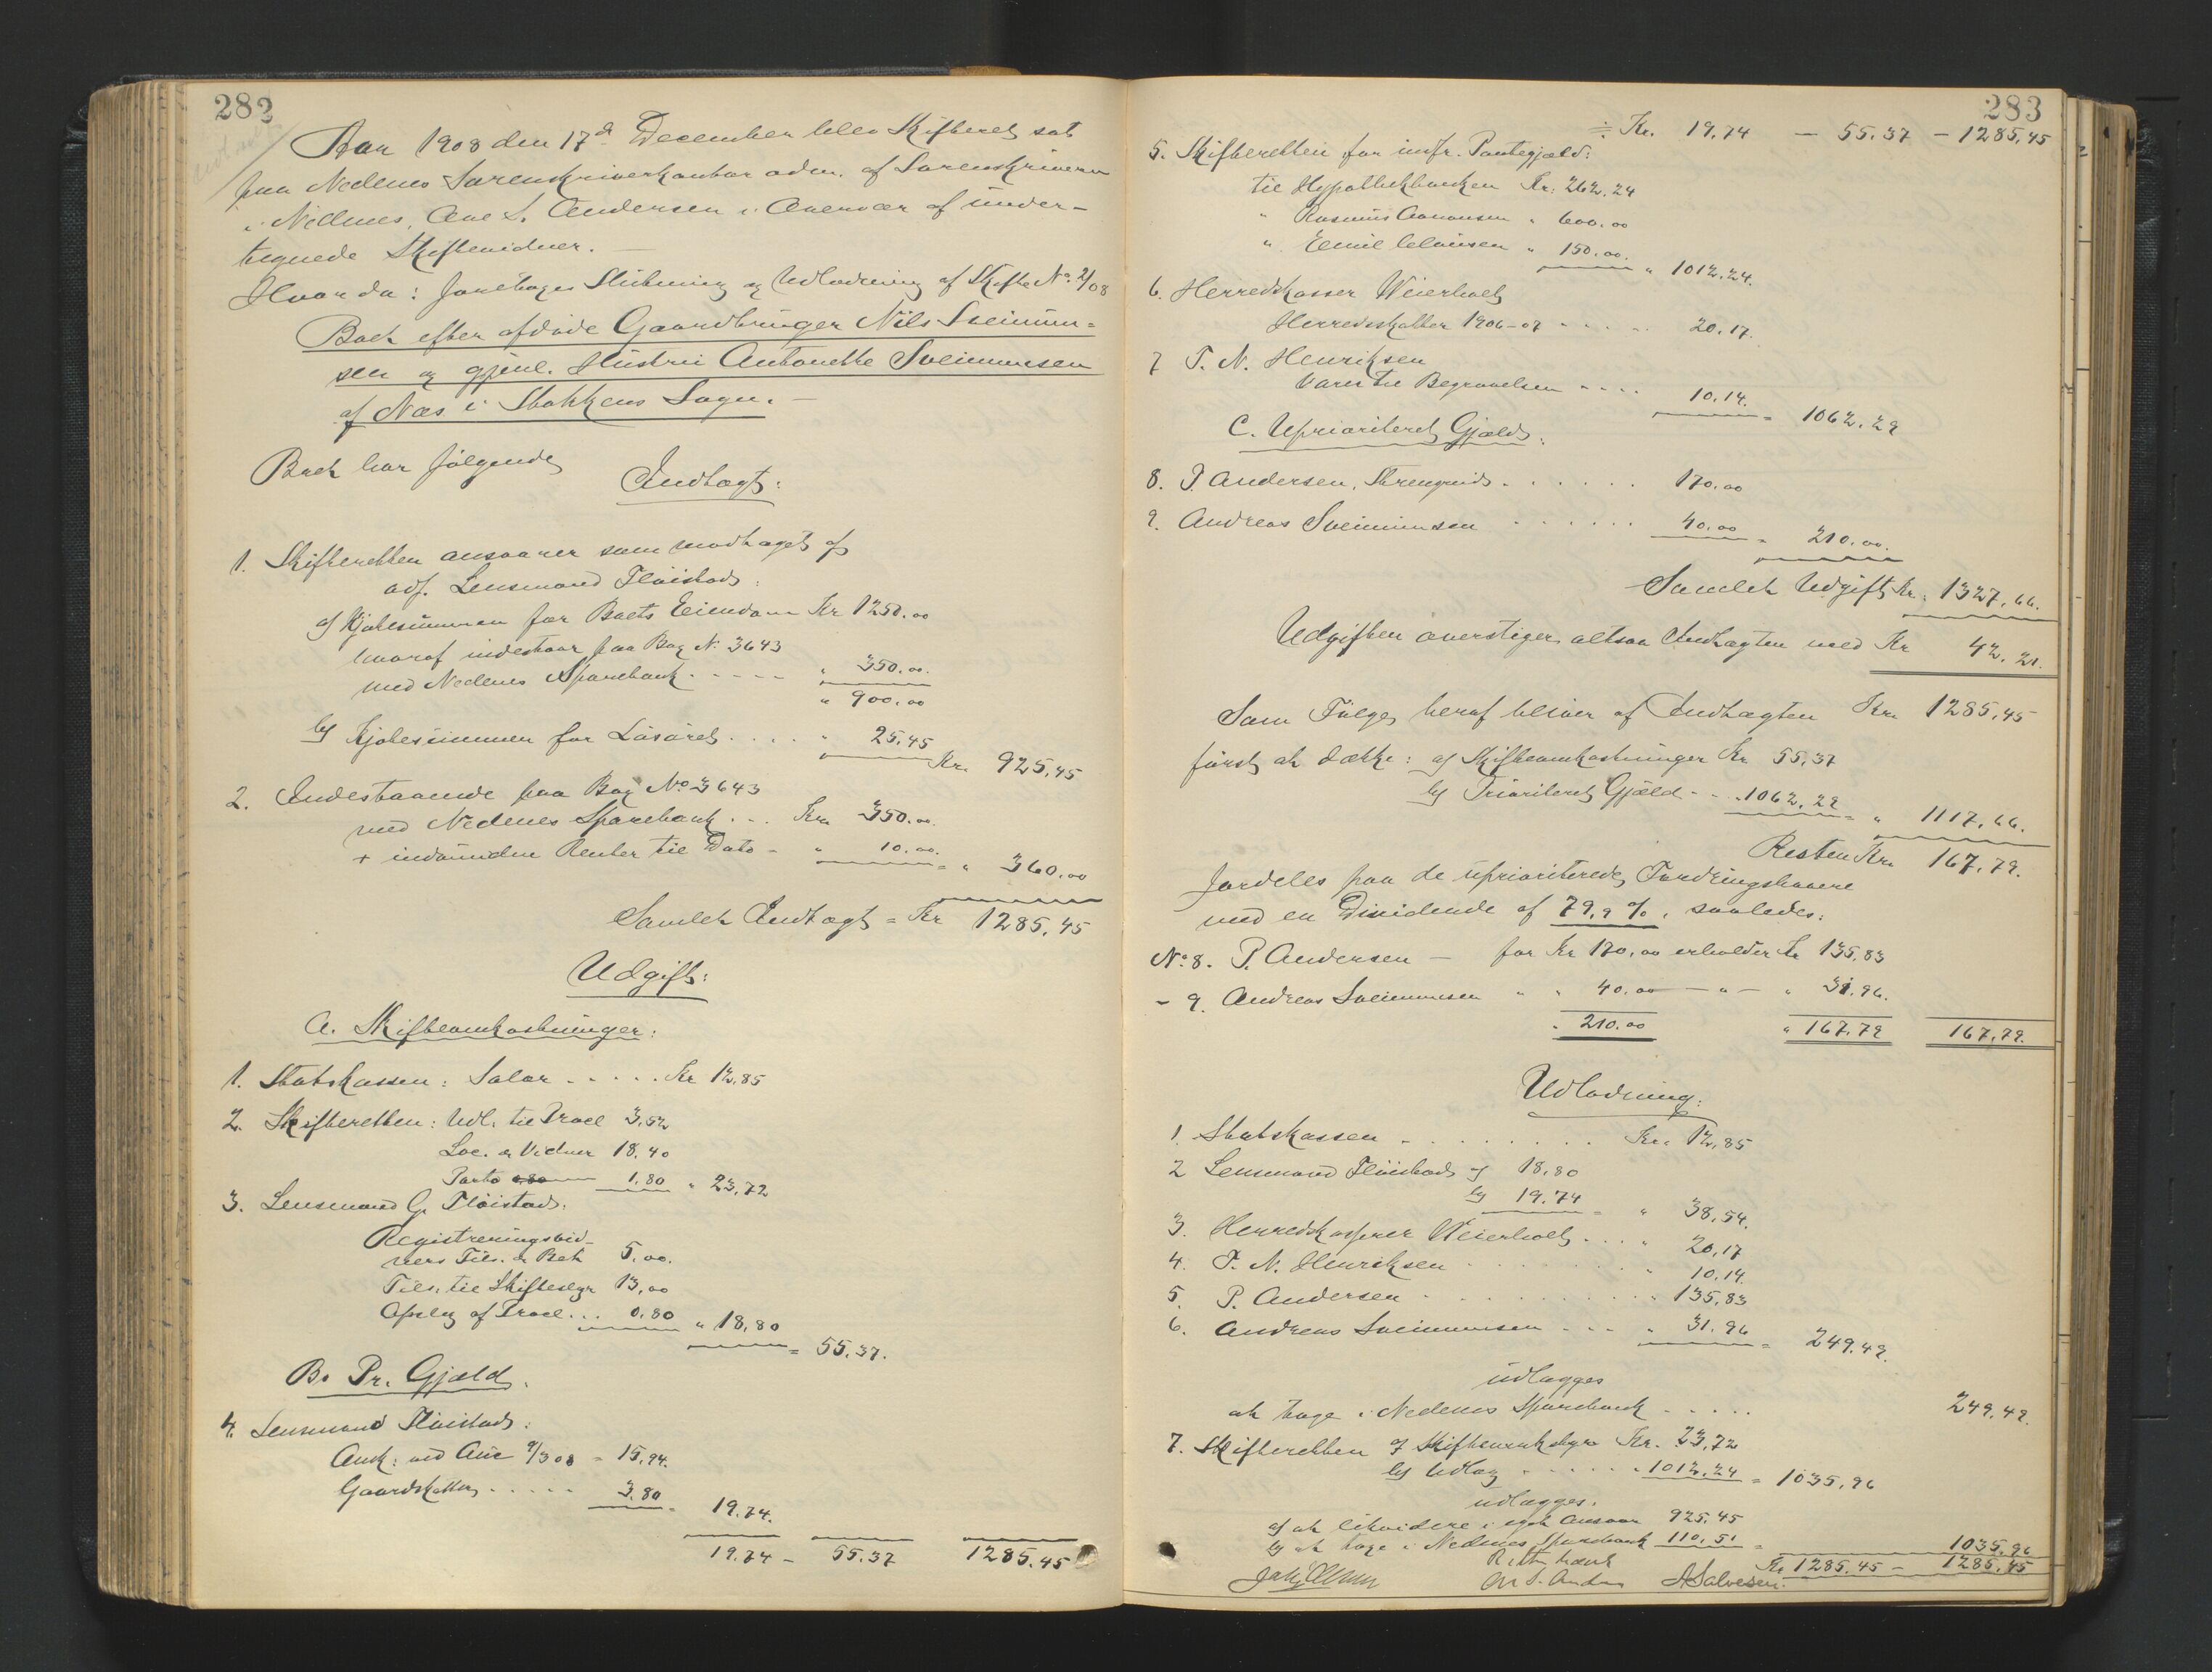 282
Aar 1908 den 17de December blev Skifteret sat
paa Nedenes Sorenskriverkontor adm. af Sorenskriveren
i Nedenes, Ove S. Andersen i Overvær af under-
tegnede Skiftevidner. —
Hvorda: foretoges Slutning og Udlodning af Skifte No. 2/08
Boet efter afdøde Gaardbruger Nils Sveinun-
sen og gjenl. Hustru Antonette Sveinunsen
af Næs i Stokkens Sogn. —
Boet har følgende
Indtægt:
1. Skifteretten ansvarer som modtaget af
adf. Lensmand Fløistad:
a) Kjøbesummen for Boets Eiendom Kr 1250.00
hvoraf indestaar paa Bog No 3643
med Nedenes Sparebank - - - - - „ 350.00.
„ 900.00
b) Kjøbesummen for Løsøret . . . . . „ 25.45
Kr. 925.45
2. Indestaaende paa Bog No 3643
med Nedenes Sparebank . . . Kr. 350.00.
+ indvundne Renter til Dato - „ 10.00. = „ 360.00
Samlet Indtægt = Kr 1285.45
Udgift:
A. Skifteomkostninger:
1. Statskassen: Salar . . . . . Kr 12.85
2. Skifteretten: Udl. til Procl 3.52
Loc. & Vidner 18.40
Porto 0.80 1.80 „ 23.72
3. Lensmand G. Fløistad:
Registreringsvid-
ners Tils. & Bek 5.00.
Tils. til Skifteslgr 13,00
Opslag af Procl . . . 0.80 „ 18.80
= 55.37.
B. Pr. Gjæld.
4. Lensmand Fløistad:
Omk. ved Auc 9/3 08 - 15.94.
Gaardskatter . . . . . 3.80 = 19.74.
19.74 - 55.37 1285.45
283
÷ Kr. 19.74 — 55.37 — 1285.45
5. Skifteretten for indfr. Pantegjæld:
til Hypothekbanken Kr. 262.24
„ Rasmus Aanonsen „ 600.00
„ Emil Clausen „ 150.00. „ 1012.24.
6. Herredskasser Weierholt
Herredsskatter 1906-07 - - - - - 20.17.
7 T. N. Henriksen
Varer til Begravelsen - - - - 10.14. = 1062.29
C. Uprioriteret Gjæld:
8. P. Andersen, Strengereid . . . . . . 170.00
9. Andreas Sveinunsen . . . . . . 40.00 = 210.00.
Samlet Udgift Kr. 1327.66.
Udgiften overstiger altsaa Indtægten med Kr 42.21.
Som Følge heraf bliver af Indtægten Kr. 1285.45
først at dække: a) Skifteomkostninger Kr 55.37
b) Prioriteret Gjæld - - . 1062.29 = „ 1117.66.
Resten Kr. 167.79.
fordeles paa de uprioriterede Fordringshavere
med en Dividende af 79,9 %, saaledes:
No 8. P. Andersen — for Kr 170.00 erholder Kr 135.83
- 9. Andreas Sveinunsen „ „ 40.00 — „ — „ 31.96.
„ 210.00 „ 167.79 167.79.
Udlodning:
1. Statskassen . . . . . . . . Kr. 12.85
2 Lensmand Fløistad a) 18.80
b) 19.74 = „ 38.54.
3. Herredskasserer Weierholt . . . . „ 20.17
4. T. N. Henriksen . . . . . . „ 10.14.
5. P. Andersen . . . . . . . . „ 135.83
6. Andreas Sveinunsen - - - „ 31.96 = 249.49.
udlægges
at tage i Nedenes Sparebank - - - - - 249.49.
7. Skifteretten a) Kr. 23,72
b) Udlæg . . . . . . 1012.24 = 1035.96
udlægges.
a) at likvidere i eget Ansvar 925.45
b) at tage i Nedenes Sparebank 110.51 = 1035.96
Kr 1285.45 — 1285.45
Ove S. Andersen A Salvesen.